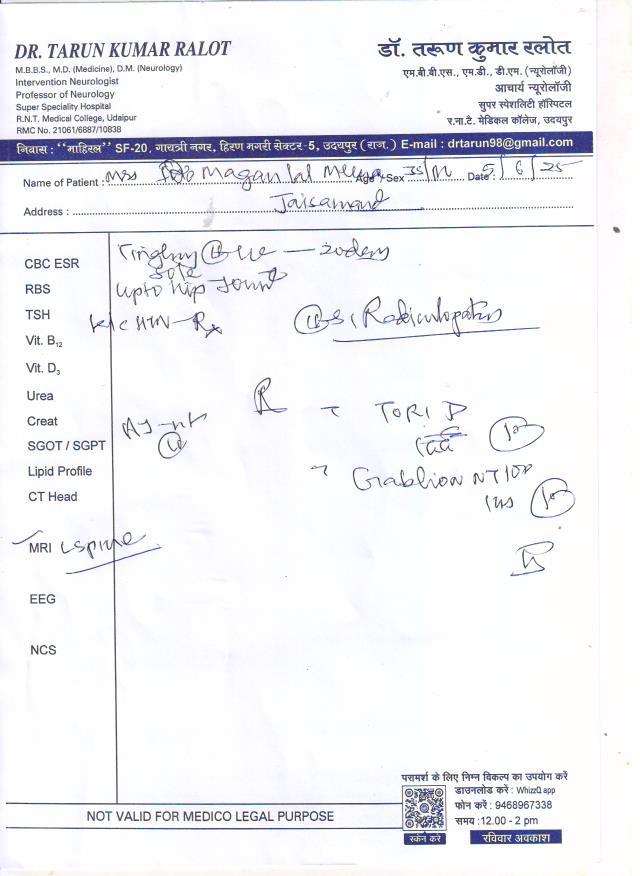 DR. TARUN KUMAR RALOT
M.B.B.S., M.D. (Medicine), D.M. (Neurology)
Intervention Neurologist
Professor of Neurology
Super Speciality Hospital
R.N.T. Medical College, Udaipur
RMC No. 21061/6887/10838
डॉ. तरूण कुमार रलोत
एम.बी.बी.एस., एम.डी., डी.एम. (न्यूरोलॉजी)
आचार्य न्यूरोलॉजी
सुपर स्पेशलिटी हॉस्पिटल
र.ना.टै. मेडिकल कॉलेज, उदयपुर
निवास : "माहिरल" SF-20, गायत्री नगर, हिरण मगरी सेक्टर-5, उदयपुर (राज.) E-mail : drtarun98@gmail.com
Name of Patient : Magan lal Meena Age / Sex 35/M Date : 5/6/25
Address : Jaisamand
CBC ESR
RBS
TSH
Vit. B12
Vit. D3
Urea
Creat
SGOT / SGPT
Lipid Profile
CT Head
MRI L spine
EEG
NCS
Tingling
sole
upto hip joint
k/c HTN - Rx
S1 Radiculopathy
R
TORI D
NT
NOT VALID FOR MEDICO LEGAL PURPOSE
परामर्श के लिए निम्न विकल्प का उपयोग करें
डाउनलोड करें : WhizzQ app
फोन करें : 9468967338
समय : 12.00 - 2 pm
स्कैन करें
रविवार अवकाश